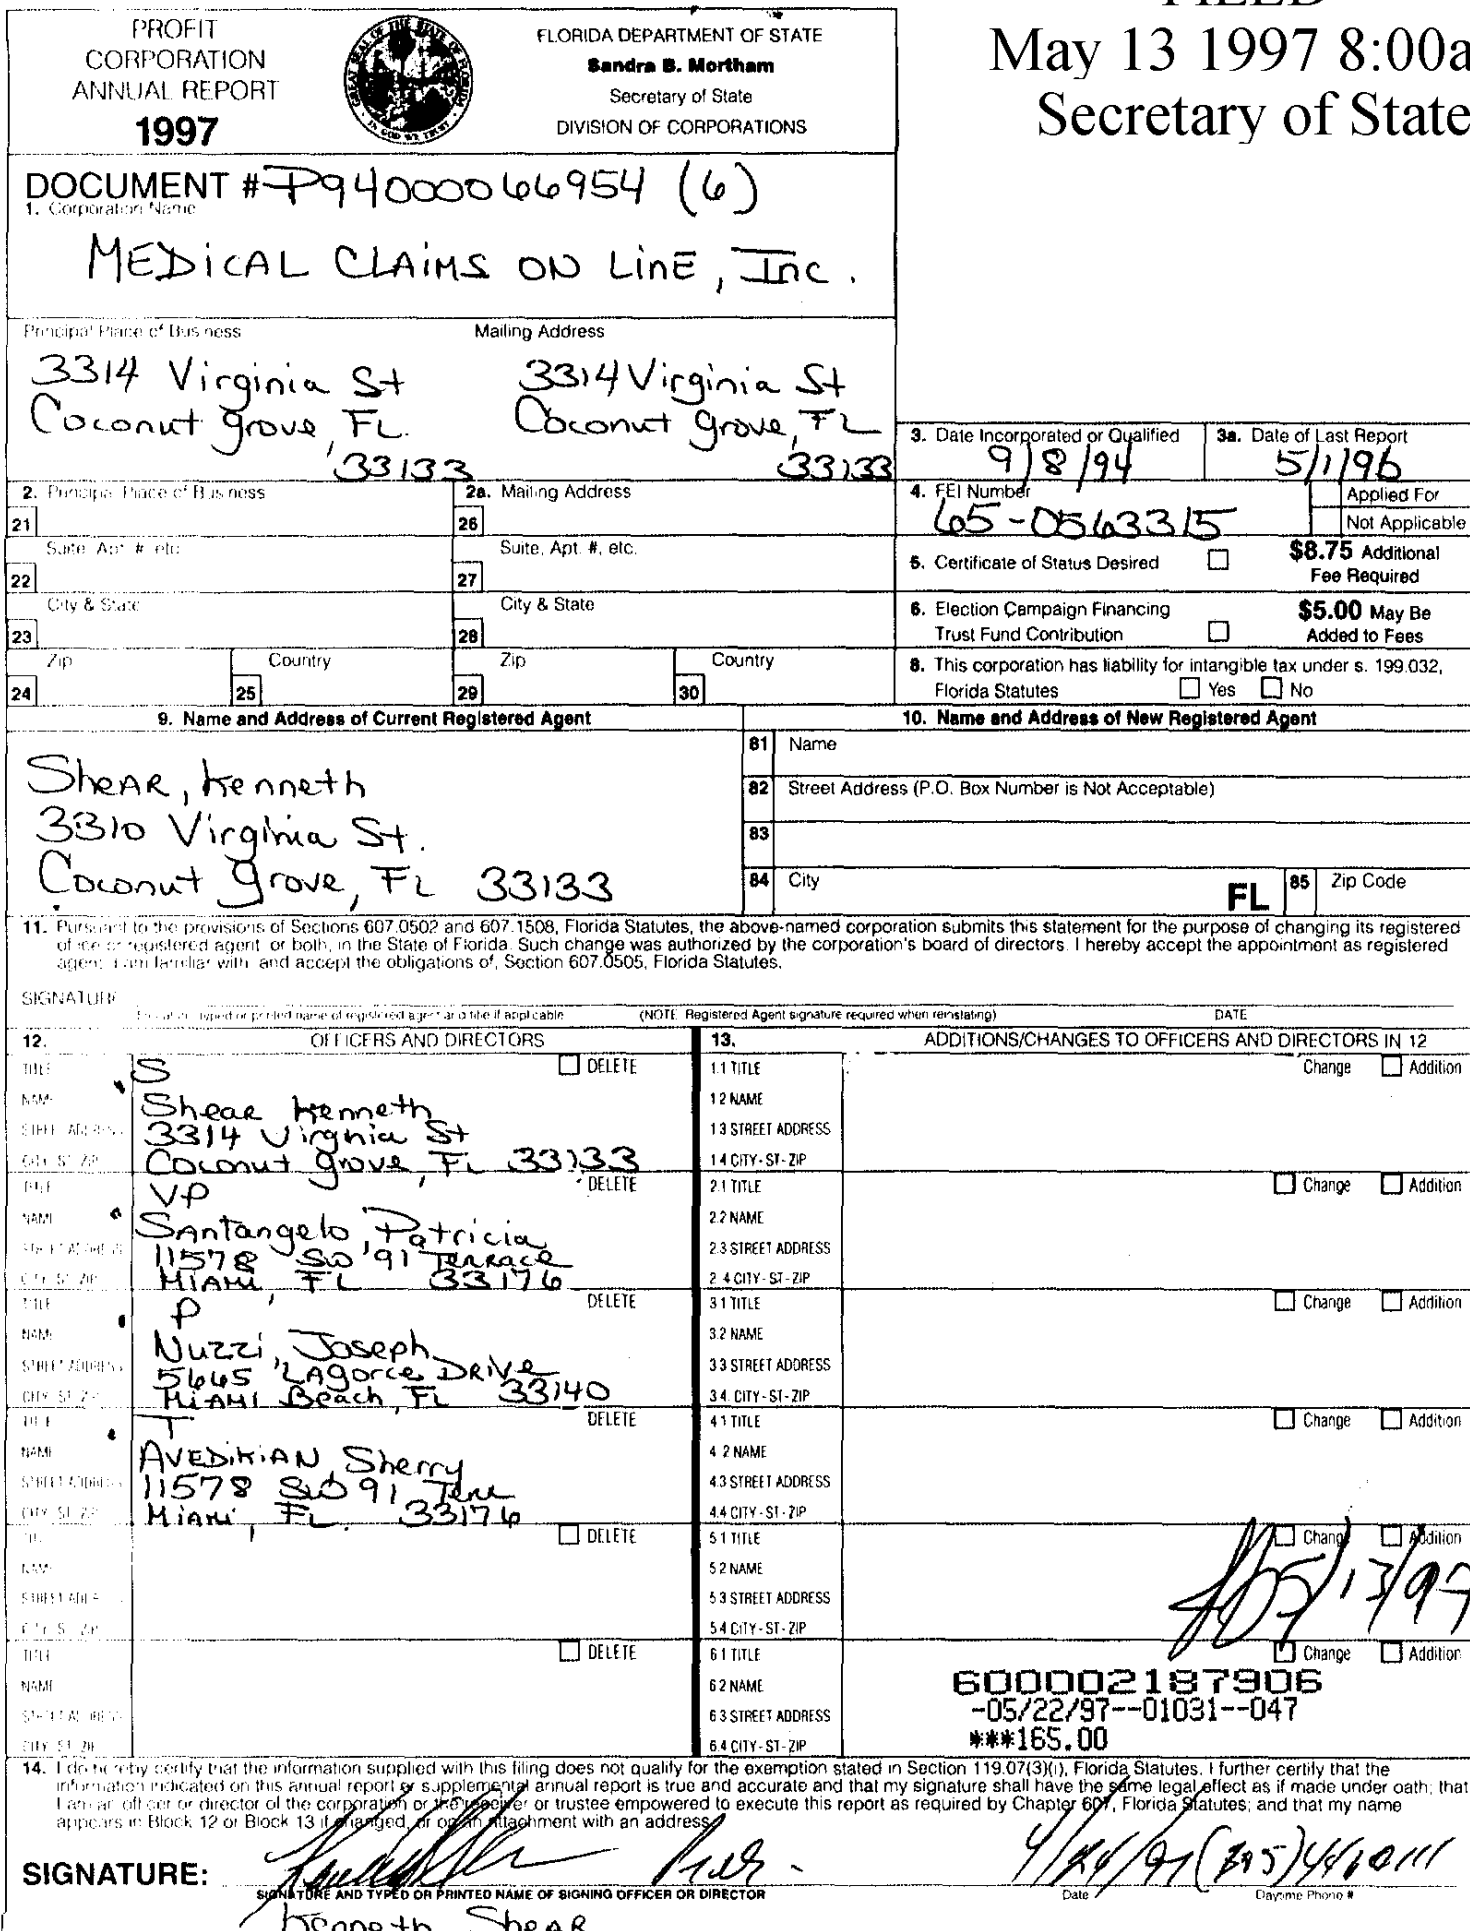 PROFIT
CORPORATION
ANNUAL REPORT
1997
FLORIDA DEPARTMENT OF STATE
Sandra B. Mortham
Secretary of State
DIVISION OF CORPORATIONS
FILED
May 13 1997 8:00a
Secretary of State
DOCUMENT # P94000066954 (6)
1. Corporation Name
MEDICAL CLAIMS ON LINE, Inc.
Principal Place of Business
3314 Virginia St
Coconut Grove, FL.
33133
Mailing Address
3314 Virginia St
Coconut Grove, FL
33133
3. Date Incorporated or Qualified
9/8/94
3a. Date of Last Report
5/1/96
2. Principal Place of Business
21
2a. Mailing Address
26
4. FEI Number
65-0563315
Applied For
Not Applicable
Suite, Apt. #, etc.
22
Suite, Apt. #, etc.
27
5. Certificate of Status Desired
$8.75 Additional
Fee Required
City & State
23
City & State
28
6. Election Campaign Financing
Trust Fund Contribution
$5.00 May Be
Added to Fees
Zip
24
Country
25
Zip
29
Country
30
8. This corporation has liability for intangible tax under s. 199.032,
Florida Statutes Yes No
9. Name and Address of Current Registered Agent
Shear, Kenneth
3310 Virginia St.
Coconut Grove, FL 33133
10. Name and Address of New Registered Agent
81 Name
82 Street Address (P.O. Box Number is Not Acceptable)
83
84 City
FL
85 Zip Code
11. Pursuant to the provisions of Sections 607.0502 and 607.1508, Florida Statutes, the above-named corporation submits this statement for the purpose of changing its registered
office or registered agent, or both, in the State of Florida. Such change was authorized by the corporation's board of directors. I hereby accept the appointment as registered
agent. I am familiar with, and accept the obligations of, Section 607.0505, Florida Statutes.
SIGNATURE
Signature, typed or printed name of registered agent and title if applicable (NOTE Registered Agent signature required when reinstating) DATE
12. OFFICERS AND DIRECTORS
13. ADDITIONS/CHANGES TO OFFICERS AND DIRECTORS IN 12
TITLE S DELETE
NAME Shear Kenneth
STREET ADDRESS 3314 Virginia St
CITY-ST-ZIP Coconut Grove, FL 33133
1.1 TITLE Change Addition
1.2 NAME
1.3 STREET ADDRESS
1.4 CITY-ST-ZIP
TITLE VP DELETE
NAME Santangelo, Patricia
STREET ADDRESS 11578 SW 91 Terrace
CITY-ST-ZIP Miami, FL 33176
2.1 TITLE Change Addition
2.2 NAME
2.3 STREET ADDRESS
2.4 CITY-ST-ZIP
TITLE P DELETE
NAME Nuzzi, Joseph
STREET ADDRESS 5645 LAgorce DRIVE
CITY-ST-ZIP MIAMI Beach, FL 33140
3.1 TITLE Change Addition
3.2 NAME
3.3 STREET ADDRESS
3.4 CITY-ST-ZIP
TITLE T DELETE
NAME AVEDIKIAN, Sherry
STREET ADDRESS 11578 SW 91 Terr
CITY-ST-ZIP Miami, FL. 33176
4.1 TITLE Change Addition
4.2 NAME
4.3 STREET ADDRESS
4.4 CITY-ST-ZIP
TITLE DELETE
NAME
STREET ADDRESS
CITY-ST-ZIP
5.1 TITLE Change Addition
5.2 NAME
5.3 STREET ADDRESS
5.4 CITY-ST-ZIP
5/13/97
TITLE DELETE
NAME
STREET ADDRESS
CITY-ST-ZIP
6.1 TITLE Change Addition
6.2 NAME
6.3 STREET ADDRESS
6.4 CITY-ST-ZIP
6000002187906
-05/22/97--01031--047
***165.00
14. I do hereby certify that the information supplied with this filing does not qualify for the exemption stated in Section 119.07(3)(i), Florida Statutes. I further certify that the
information indicated on this annual report or supplemental annual report is true and accurate and that my signature shall have the same legal effect as if made under oath; that
I am an officer or director of the corporation or the receiver or trustee empowered to execute this report as required by Chapter 607, Florida Statutes; and that my name
appears in Block 12 or Block 13 if changed, or on an attachment with an address.
SIGNATURE:
SIGNATURE AND TYPED OR PRINTED NAME OF SIGNING OFFICER OR DIRECTOR
Date
Daytime Phone #
Kenneth Shear